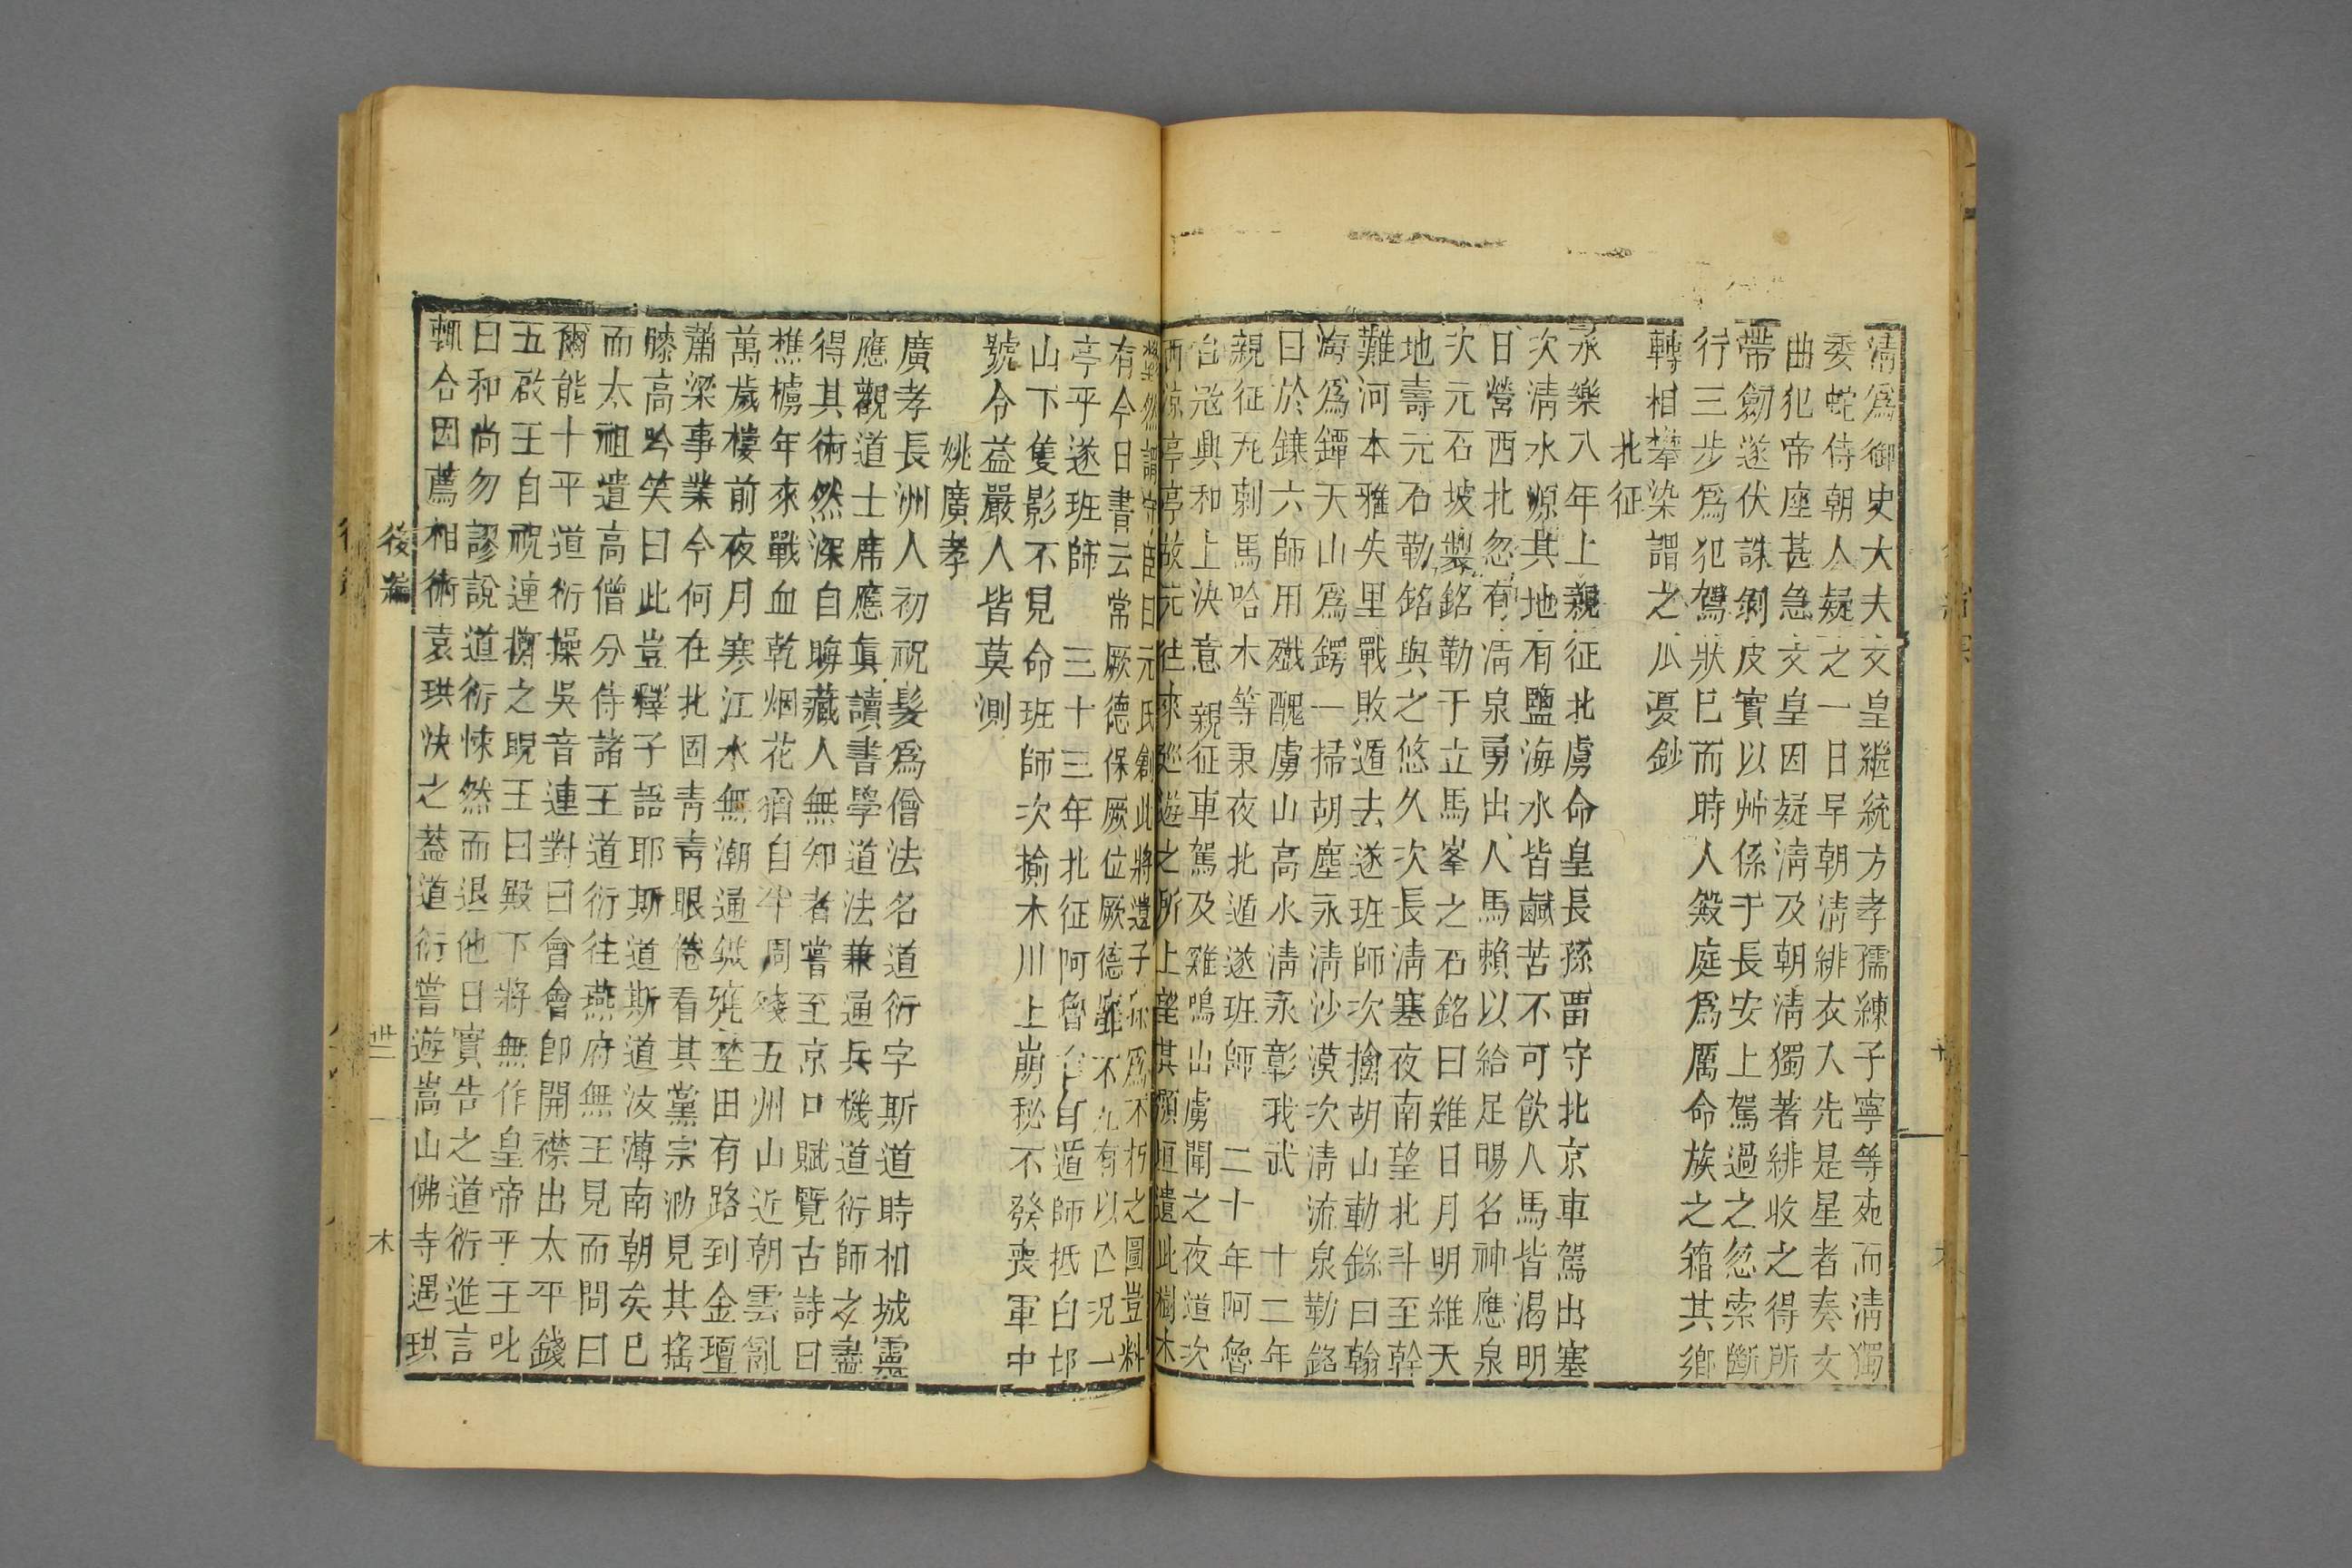 清爲御史大夫文皇繼統方孝孺練子寧等死而清獨
委蛇侍朝人疑之一日早朝清緋衣人先是星者奏文
曲犯帝座甚急文皇因疑清及朝清獨著緋收之得所
帶劒遂伏誅剝皮實以艸係于長安上駕過之忽索斷
行三步爲犯駕狀巳而時人殿庭爲厲命族之籍其鄉
轉相攀染謂之瓜蔓鈔
北征
永樂八年上親征北虜命皇長孫畱守北京車駕出塞
次清水源其地有鹽海水皆鹹苦不可飲人馬皆渴明
日營西北忽有清泉勇出人馬賴以給足賜名神應泉
次元石坡製銘勒于立馬峯之石銘曰維日月明維天
地壽元石勒銘與之悠久次長清塞夜南望北斗至幹
難河本雅失里戰敗遁去遂班師次擒胡山勒銘曰翰
海爲鐔天山爲鍔一掃胡塵永清沙漠次清流泉勒銘
曰於鑠六師用殲醜虜山高水清永彰我武 十二年
親征九剌馬哈木等秉夜北遁遂班師 二十年阿魯
台冦興和上決意親征車駕及雞鳴山虜聞之夜遁次
西涼亭亭故元徃來廵遊之所上望其頹垣遺此樹木
鬱然謂守臣曰元氏創此將遺子孫爲不朽之圖豈料
有今日書云常厥德保厥位厥德靡不九有以亾况一
亭乎遂班師 三十三年北征阿魯台可遁師抵白邙
山下隻影不見命班師次揄木川上崩秘不發喪軍中
號令益嚴人皆莫測
姚廣孝
廣孝長洲人初祝髮爲僧法名道衍字斯道時相城靈
應觀道士席應眞讀書學道法兼通兵機道衍師之盡
得其術然深自晦藏人無知者嘗至京口賦覽古詩曰
樵櫓年來戰血乾烟花猶自半周殘五州山近朝雲亂
萬歲樓前夜月寒江水無潮通鐵甕埜田有路到金壇
蕭梁事業今何在北固青青眼倦看其黨宗泐見其搖
膝高吟笑曰此豈釋子語耶斯道斯道汝薄南朝矣巳
而太祖遣高僧分侍諸王道衍往燕府無王見而問曰
爾能十平道衍操吳音連對曰會會卽開襟出太平錢
五啟王自祝連擲之睨王曰殿下將無作皇帝平王叱
曰和尚勿謬說道衍悚然而退他日實告之道衍進言
輒合因薦相術袁珙決之葢道衍嘗遊嵩山佛寺遇珙
後編
卅二
木